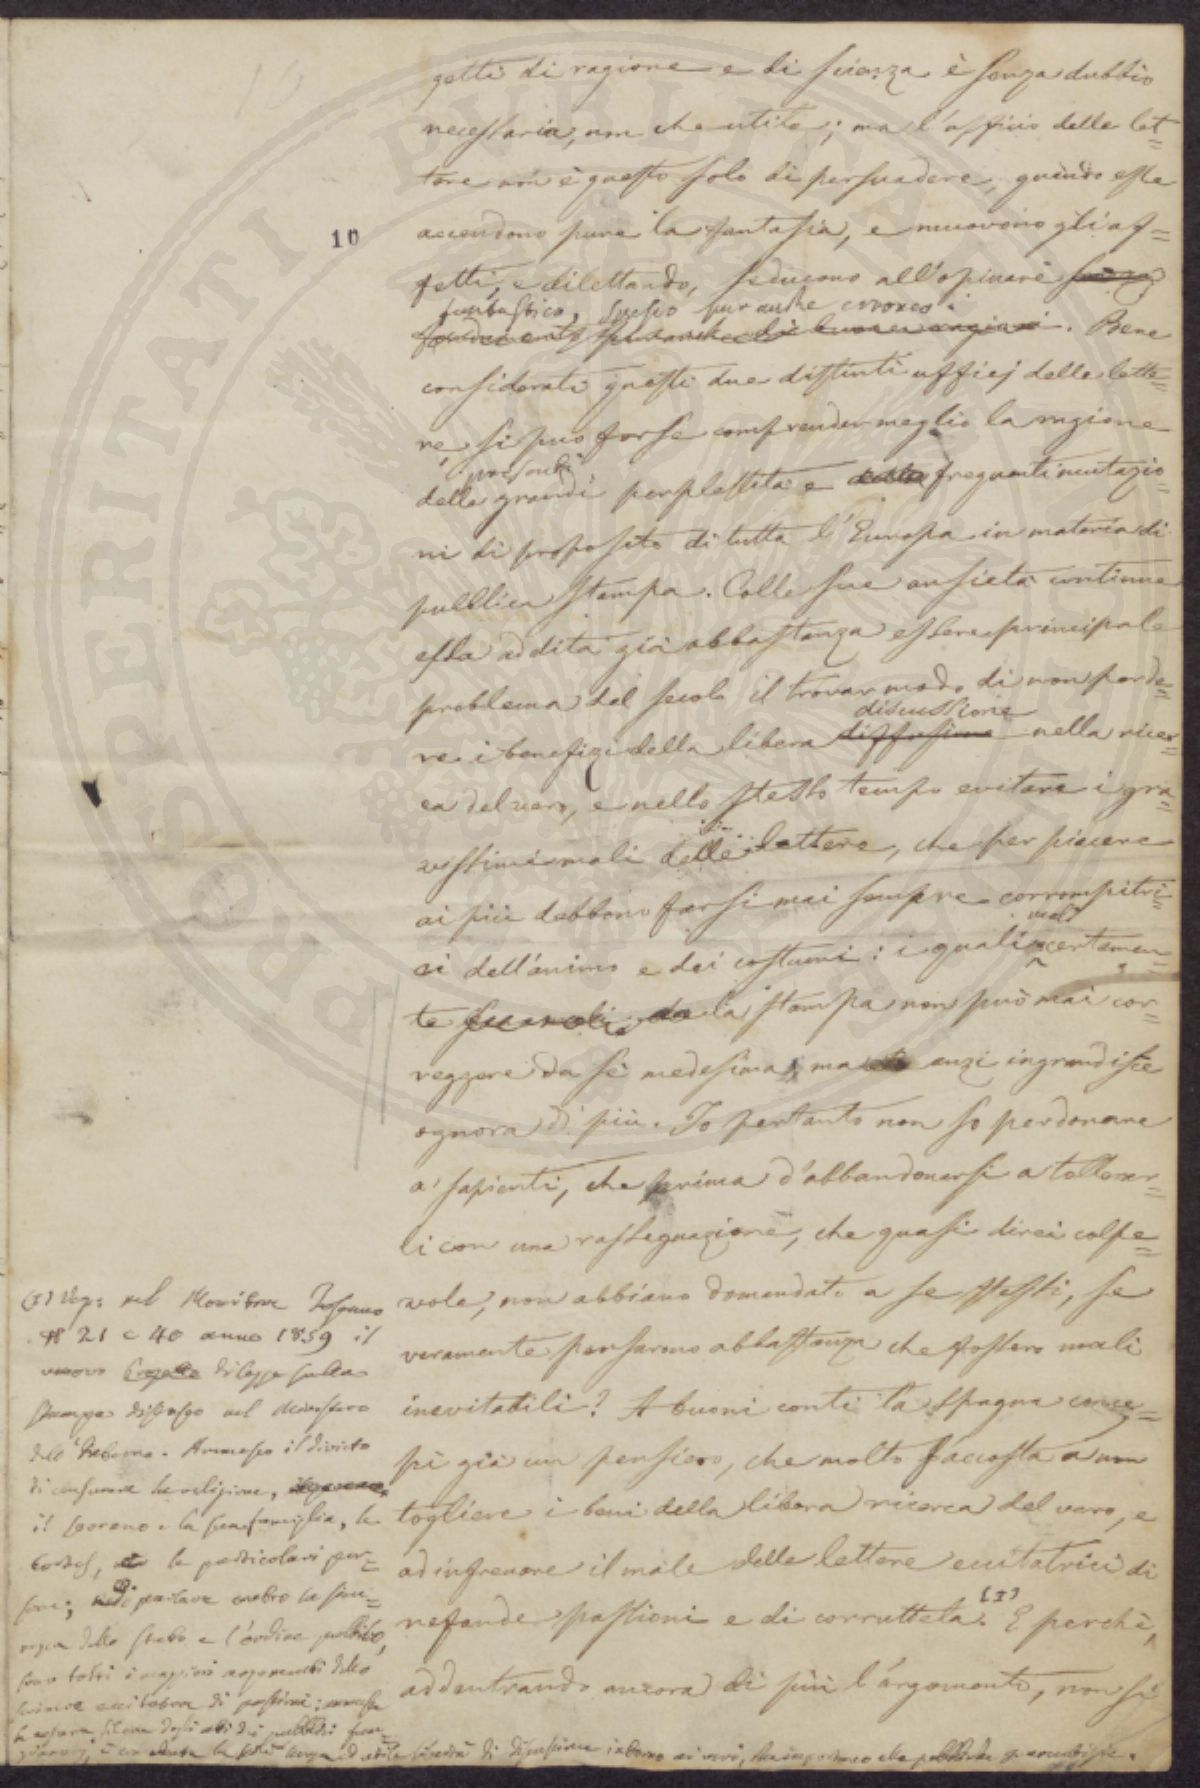 getti di ragione e di scienza è senza dubbio
necessaria, non che utile; ma l'afficio delle let=
tere non è questo solo di persuadere, quando esse
10
accendono pure la fantasia, e muovono gli af=
fetti, e dilettando, seducono all'opinare senza
fantastico, spesso pur anche erroneo:
fondamento di buone ragioni. Bene
considerati questi due distinti ufficj delle lette=
re, si può forse comprender meglio la ragione
presenti
delle grandi perplessità e delle frequenti mutazio=
ni di proposito di tutta l'Europa in materia di
pubblica stampa. Colle sue ansietà continue
essa addita già abbastanza essere principale
problema del secolo il trovar modo di non perde=
discussione
re i benefizi della libera diffusione nella ricer=
ca del vero, e nello stesso tempo evitare i gra=
vissimi mali delle lettere, che per piacere
ai più debbono farsi mai sempre corrompitri=
mali
ci dell'animo e dei costumi: i quali certamen=
te la stampa non può mai cor=
reggere da sè medesima, ma anzi ingrandisce
ognora di più. Io pertanto non so perdonare
a' sapienti, che prima d'abbandonarsi a tollerar=
li con una rassegnazione, che quasi direi colpe=
vole, non abbiano domandato a se stessi, se
veramente pensarono abbastanza che fossero mali
inevitabili? A buoni conti la Spagna conce=
pì già un pensiero, che molto s'accosta a non
togliere i beni della libera ricerca del vero, e
ad infrenare il male delle lettere eccitatrici di
nefande passioni e di corruttela. (I) E perchè,
addentrando ancora di più l'argomento, non si
(I) Veg: nel Monitore Toscano
N° 21 e 40 anno 1859 il
nuovo Progetto di legge sulla
stampa discusso nel
di censurare la religione,
il sovrano e la sua famiglia, le
Cortes, e le particolari per=
sone; di parlare contro la sicu=
rezza dello stato e l'ordine pubblico,
sono tolti i maggiori argomenti dello
scrivere eccitatore di passioni:
la censura degli atti dei pubblici fun=
zionarj, è la libertà di discussione intorno ai veri, che importano alla pubblica